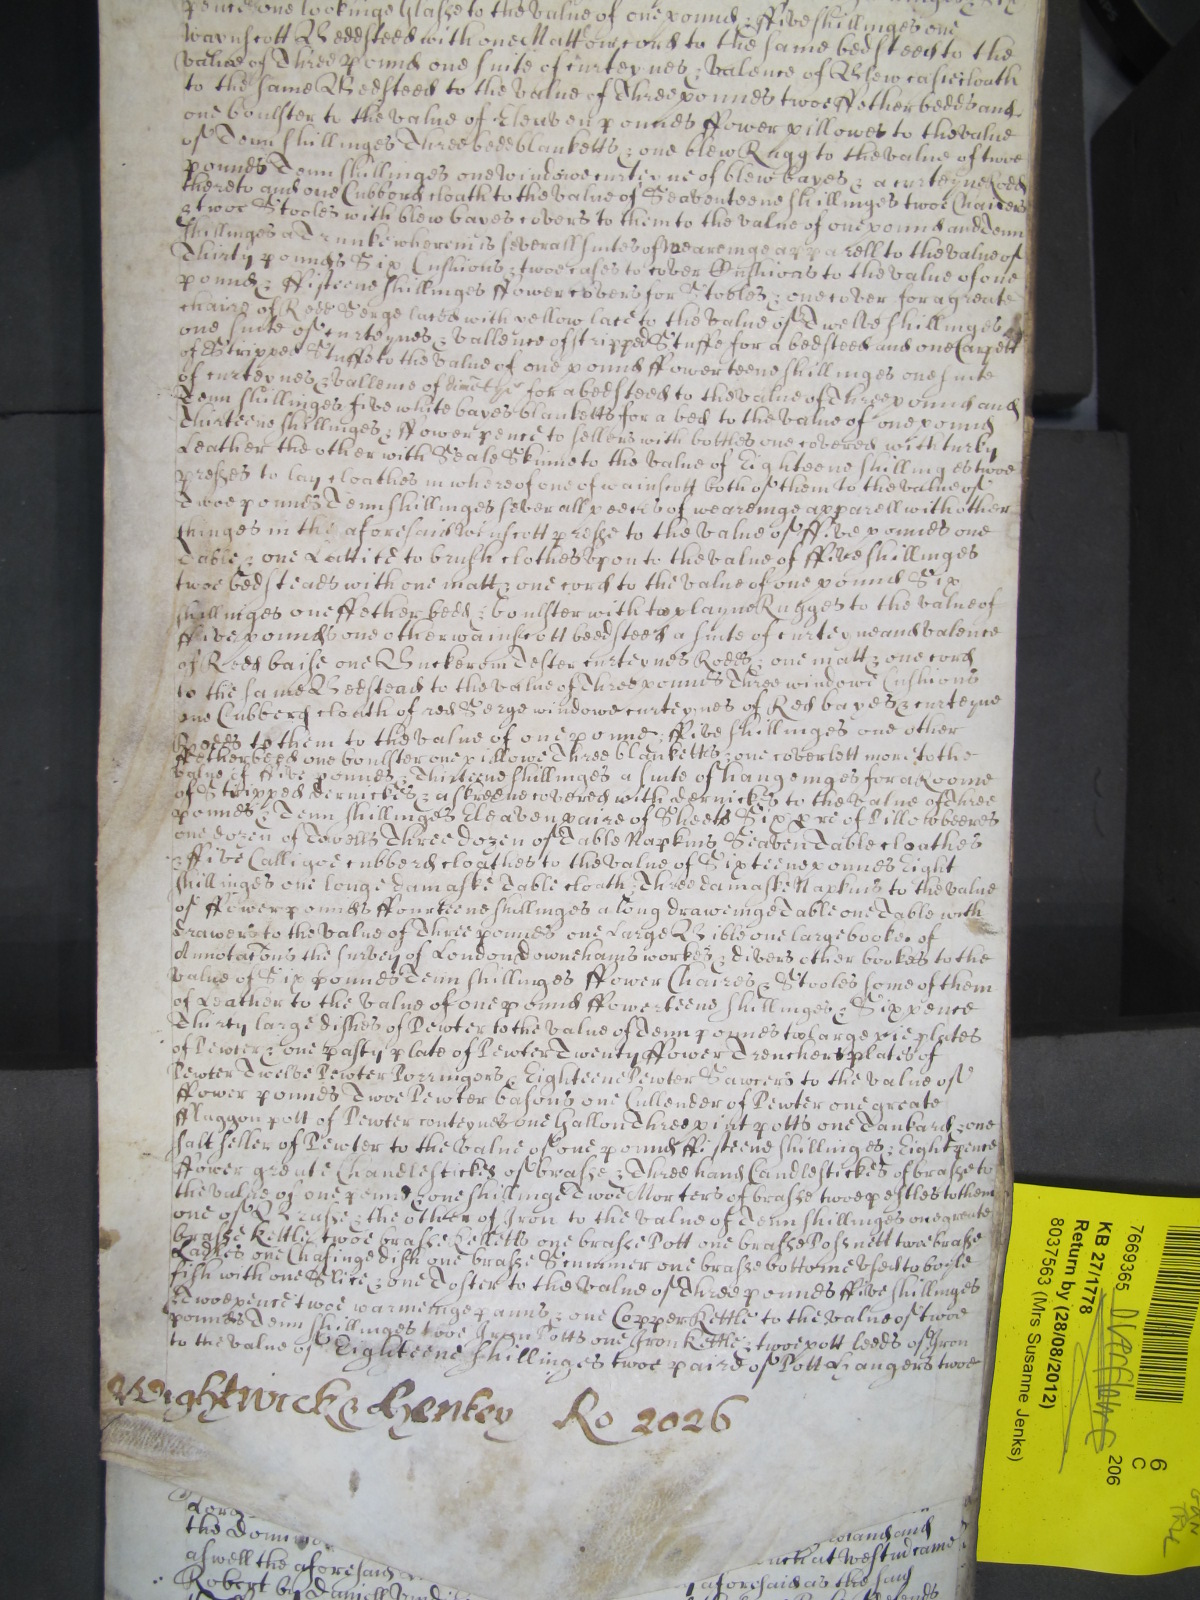 pence one lookinge Glasse to the value of one pound & ffive shillinges one
Waynscott Beddsteed with one Matt one cord to the same bedsteed to the
value of Three pound one suite of curteynes & valence of Blew cloath
to the same Bedsteed to the value of Three pounds twoe ffether bedds and
one boulster to the value of Eleaven pounds ffower pillowes to the value
of Tenn shillinges Three bedd blanketts & one blew Rugg to the value of twoe
pounds Tenn shillinges one windowe curteyne of blew bayes & a curteyne Rodd
thereto and one Cubbord cloath to the value of Seaventeene shillinges twoe Chaiers
& twoe Stooles with blew bayes covers to them to the value of one pound and Tenn
shillinges a Trunke wherein is severall suites of weareinge apparell to the value of
Thirty pounds Six Cushions & twoe cases to cover Cushions to the value of one
pound & ffifteene shillinges ffower covers for Stooles & one cover for a greate
chaire of Redd Serge laced with yellow lace to the value of Twelve shillinges
one suite of curteynes & vallence of stripped Stuffe for a bedsteed and one Carpett
of Stripped Stuffe to the value of one pound ffowerteene shillinges one suite
of curteynes & vallence of for a bedsteed to the value of Three pound and
Tenn shillinges five white bayes blanketts for a bed to the value of one pound
Thirteene shillinges & ffower pence to sellers with bottles one covered with turky
Leather the other with Seale Skinne to the value of Eighteene shillinges twoe
presses to lay cloathes in whereof one of wainscott both of them to the value of
Twoe pounds Tenn shillinges severall peeces of weareinge apparell with other
thinges in the aforesaid Winscott presse to the value of ffive pounds one
Table & one Lattice to brush clothes upon to the value of ffive shillinges
twoe bedsteads with one matt & one cord to the value of one pound Six
shillinges one ffether bedd & boulster with two playne Rugges to the value of
ffive pounds one other wainscott beedsteed a suite of curteyne and valence
of Redd baise one Buckerom Tester curteynes Rodds & one matt & one cord
to the same Bedstead to the value of Three pounds Three windowe Cushions
one Cubberd cloath of red Serge windowe curteynes of Red bayes & curteyne
Rodds to them to the value of one pound & ffive shillinges one other
ffetherbedd one boulster one pillowe Three blanketts & one coverlett more to the
value of ffive pounds & Thirteene shillinges a suite of hangeinges for a Roome
of Stripped dernickes & a skreene covered with dernickes to the value of Three
pounds & Tenn shillinges Eleaven paire of Sheets Six pre of Pillowbeeres
one dozen of Towells Three dozen of Table Napkins Seaven Table cloathes
& ffive Calligoe cubberd cloathes to the value of Sixteene pounds Eight
shillinges one longe damaske Table cloath & Three damaske Napkins to the value
of ffower pounds ffourteene shillinges a long draweinge Table one Table with
drawers to the value of Three pounds one Large Bible one large booke of
Annotations the survey of London Downehams workes & divers other bookes to the
value of Six pounds Tenn shillinges ffower Chaires & Stooles some of them
of Leather to the value of one pound ffowerteene shillinges & Sixpence
Thirty large dishes of Pewter to the value of Tenn pounds two large pie plates
of Pewter & one pasty plate of Pewter Twenty ffower Trenchers plates of
Pewter Twelve Pewter Porringors & Eighteene Pewter Sawcers to the value of
ffower pounds Twoe Pewter basons one Cullender of Pewter one greate
ffluggon pott of Pewter conteynes one Gallon Three pint potts one Tankard & one
salt seller of Pewter to the value of one pound ffifteene shillinges & Eight pence
ffower greate Chandlestickes of brasse & Three hand Candlestickes of brasse to
the value of one pound & one shillinge Twoe Morters of brasse twoe pestles to them
one of Brasse & the other of Iron to the value of Tenn shillinges one greate
brasse kettle twoe brasse kelletts one brasse Pott one brasse Posnett twoe brasse
Ladles one Chafinge dish one brasse Scummer one brasse bottome used to boyle
fish with one Slice & one Toster to the value of Three pounds ffive shillinges
& Twoe pence twoe warmeinge panns & one Copper Kettle to the value of twoe
pounds Tenn shillinges twoe Iron Potts one Iron Kettle & twoe pott lidds of Iron
to the value of Eighteene shillinges twoe paire of Pott Hangers twoe
Wightwick & Henley Ro 2026
the
as well the aforesaid at Westm came
Robert by Daniell aforesaid as the said
7669365
KB 27/1778
Return by (28/08/2012)
8037563 (Mrs Susanne Jenks)
206
6
C